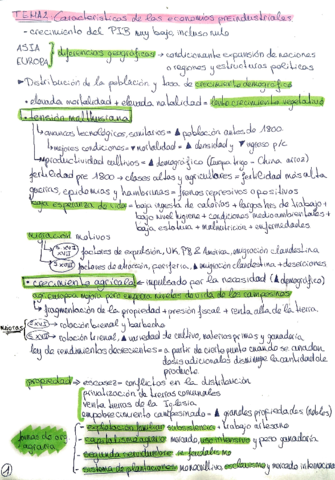 TEMA 1: Características de las economías preindustriales
- crecimiento del PIB muy bajo incluso nulo
ASIA
EUROPA
diferencias geográficas → condicionante expansión de naciones
o regiones y estructuras políticas
Distribución de la población y tasa de crecimiento demográfico
• elevada mortalidad + elevada natalidad = leve crecimiento vegetativo
• tensión malthusiana
avances tecnológicos, sanitarios = ▲ población antes de 1800
mejores condiciones = ▼ mortalidad = ▲ densidad y ▼ ingreso p/c
productividad cultivos = ▲ demográfico (Europa trigo - China arroz)
fertilidad pre 1800 → clases altas y agricultores = fertilidad más alta
guerras, epidemias y hambrunas = frenos represivos o positivos
baja esperanza de vida = baja ingesta de calorías + largas horas de trabajo +
bajo nivel higiene + condiciones medioambientales +
baja estatura + malnutrición + enfermedades
migración motivos
factores de expulsión, UK, PB a América, migración clandestina
factores de atracción, periferia, ▲ migración clandestina + deserciones
• crecimiento agrícola → impulsado por la necesidad (▲ demográfico)
niveles de vida de los campesinos
fragmentación de la propiedad + presión fiscal + renta alta de la tierra
rotación bienal y barbecho
rotación trienal, ▲ variedad de cultivo, materias primas y ganadería
ley de rendimientos decrecientes = a partir de cierto punto cuando se añaden
dosis adicionales disminuye la cantidad de
producto.
propiedad → escasez = conflictos en la distribución
privatización de tierras comunales
venta tierras de la Iglesia
empobrecimiento campesinado → ▲ grandes propiedades (nobles)
formas de org
agraria
explotación familiar subsistencia + trabajo artesano
capitalismo agrario mercado, uso intensivo y peso ganadería
segunda servidumbre = feudalismo
sistema de plantaciones monocultivo esclavismo y mercado internacional
1